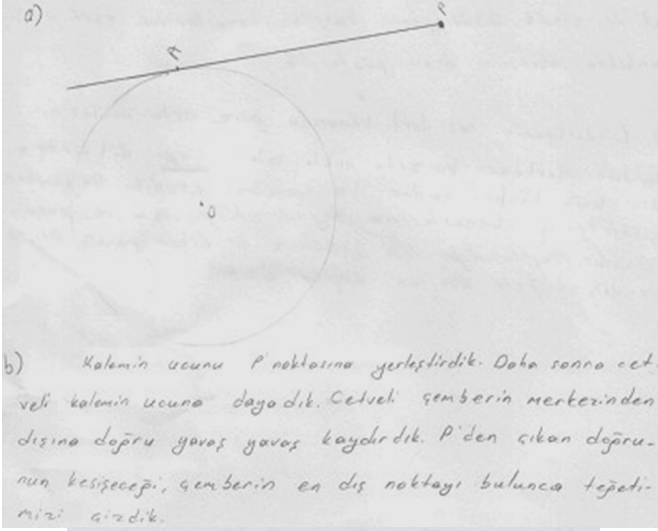 a)
P
A
O
b) Kalemin ucunu P noktasına yerleştirdik. Daha sonra cet-
veli kalemin ucuna dayadık. Cetveli çemberin merkezinden
dışına doğru yavaş yavaş kaydırdık. P'den çıkan doğru-
nun kesişeceği, çemberin en dış noktayı bulunca teğeti-
mizi çizdik.